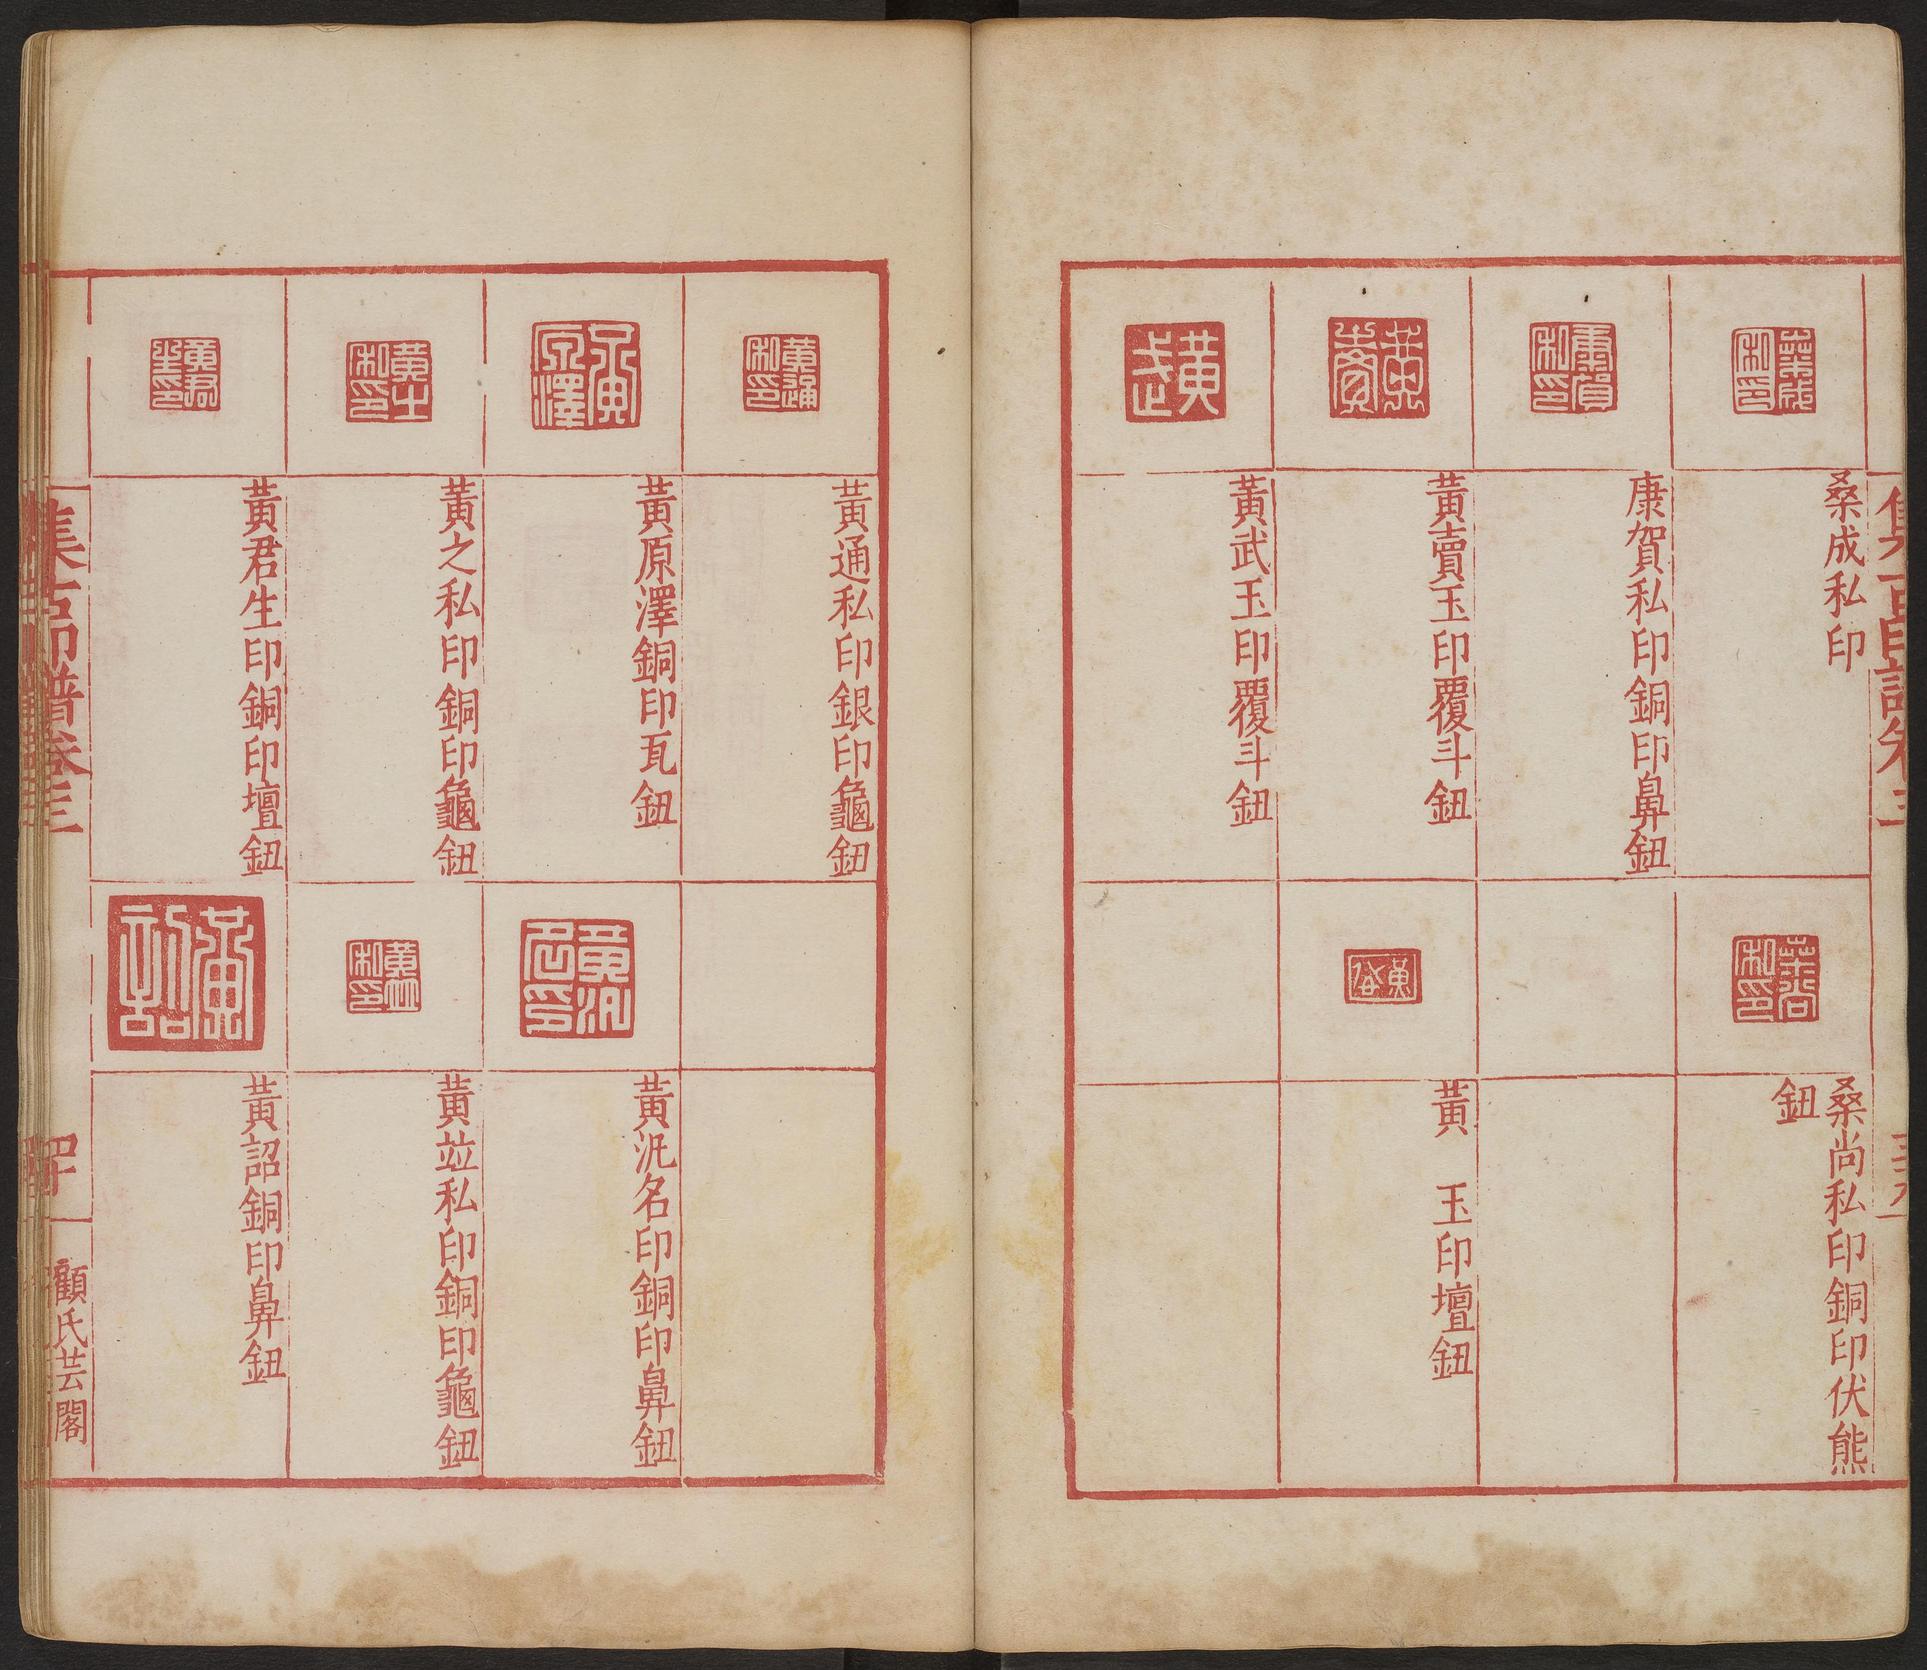 桑成私印
康賀私印銅印鼻鈕
黃賣玉印覆斗鈕
黃武玉印覆斗鈕
桑尚私印銅印伏熊
鈕
黃 玉印壇鈕
黃通私印銀印龜鈕
黃原澤銅印瓦鈕
黃之私印銅印龜鈕
黃君生印銅印壇鈕
黃汎名印銅印鼻鈕
黃竝私印銅印龜鈕
黃詔銅印鼻鈕
集古印譜卷三
四十
顧氏芸閣